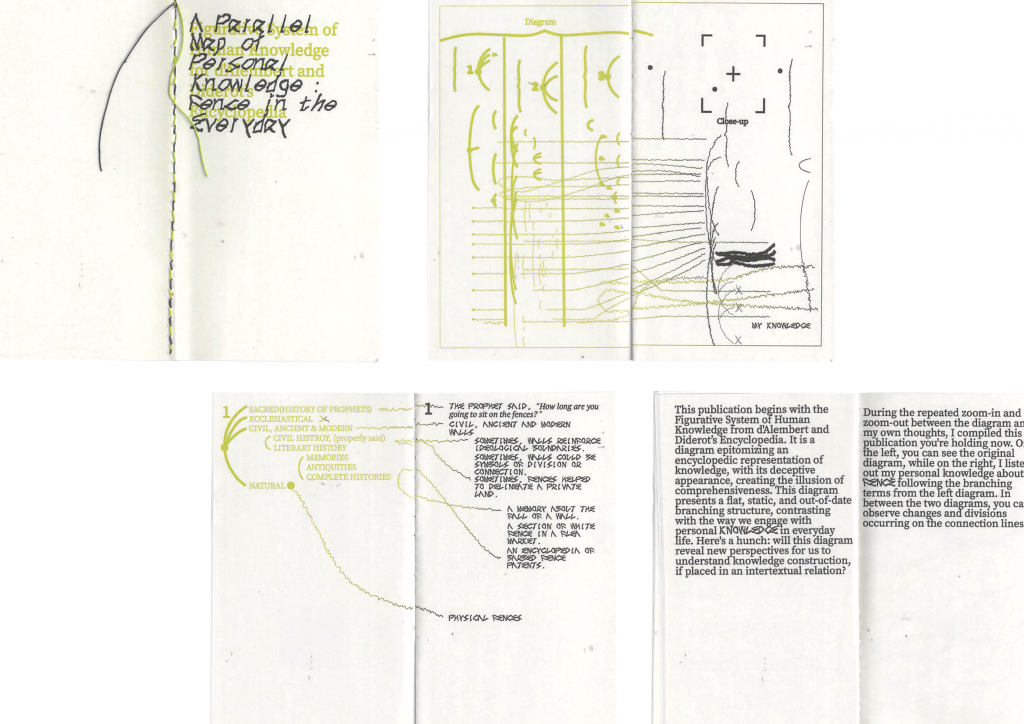 A Parallel
Map of
Personal
Knowledge:
Fence in the
Everyday
Figurative System of
Human Knowledge
for d'Alembert and
Diderot's
Encyclopedia
Diagram
1
2
3
Close-up
MY KNOWLEDGE
1
SACRED(HISTORY OF PROPHETS)
ECCLESIASTICAL
CIVIL, ANCIENT & MODERN
CIVIL HISTROY, (properly said)
LITERART HISTORY
MEMORIES
ANTIQUITIES
COMPLETE HISTORIES
NATURAL
1
THE PROPHET SAID, "How long are you
going to sit on the fences?"
CIVIL, ANCIENT AND MODERN
WALLS
SOMETIMES, WALLS REINFORCE
IDEOLOGICAL BOUNDARIES.
SOMETIMES, WALLS COULD BE
SYMBOLS OF DIVISION OR
CONNECTION.
SOMETIMES, FENCES HELPED
TO DELINEATE A PRIVATE
LAND.
A MEMORY ABOUT THE
FALL OF A WALL.
A SECTION OF WHITE
FENCE IN A FLEA
MARKET.
AN ENCYCLOPEDIA OF
BARBED FENCE
PATENTS.
PHYSICAL FENCES
This publication begins with the
Figurative System of Human
Knowledge from d'Alembert and
Diderot's Encyclopedia. It is a
diagram epitomizing an
encyclopedic representation of
knowledge, with its deceptive
appearance, creating the illusion of
comprehensiveness. This diagram
presents a flat, static, and out-of-date
branching structure, contrasting
with the way we engage with
personal KNOWLEDGE in everyday
life. Here's a hunch: will this diagram
reveal new perspectives for us to
understand knowledge construction,
if placed in an intertextual relation?
During the repeated zoom-in and
zoom-out between the diagram an
my own thoughts, I compiled this
publication you're holding now. O
the left, you can see the original
diagram, while on the right, I liste
out my personal knowledge about
FENCE following the branching
terms from the left diagram. In
between the two diagrams, you ca
observe changes and divisions
occurring on the connection lines